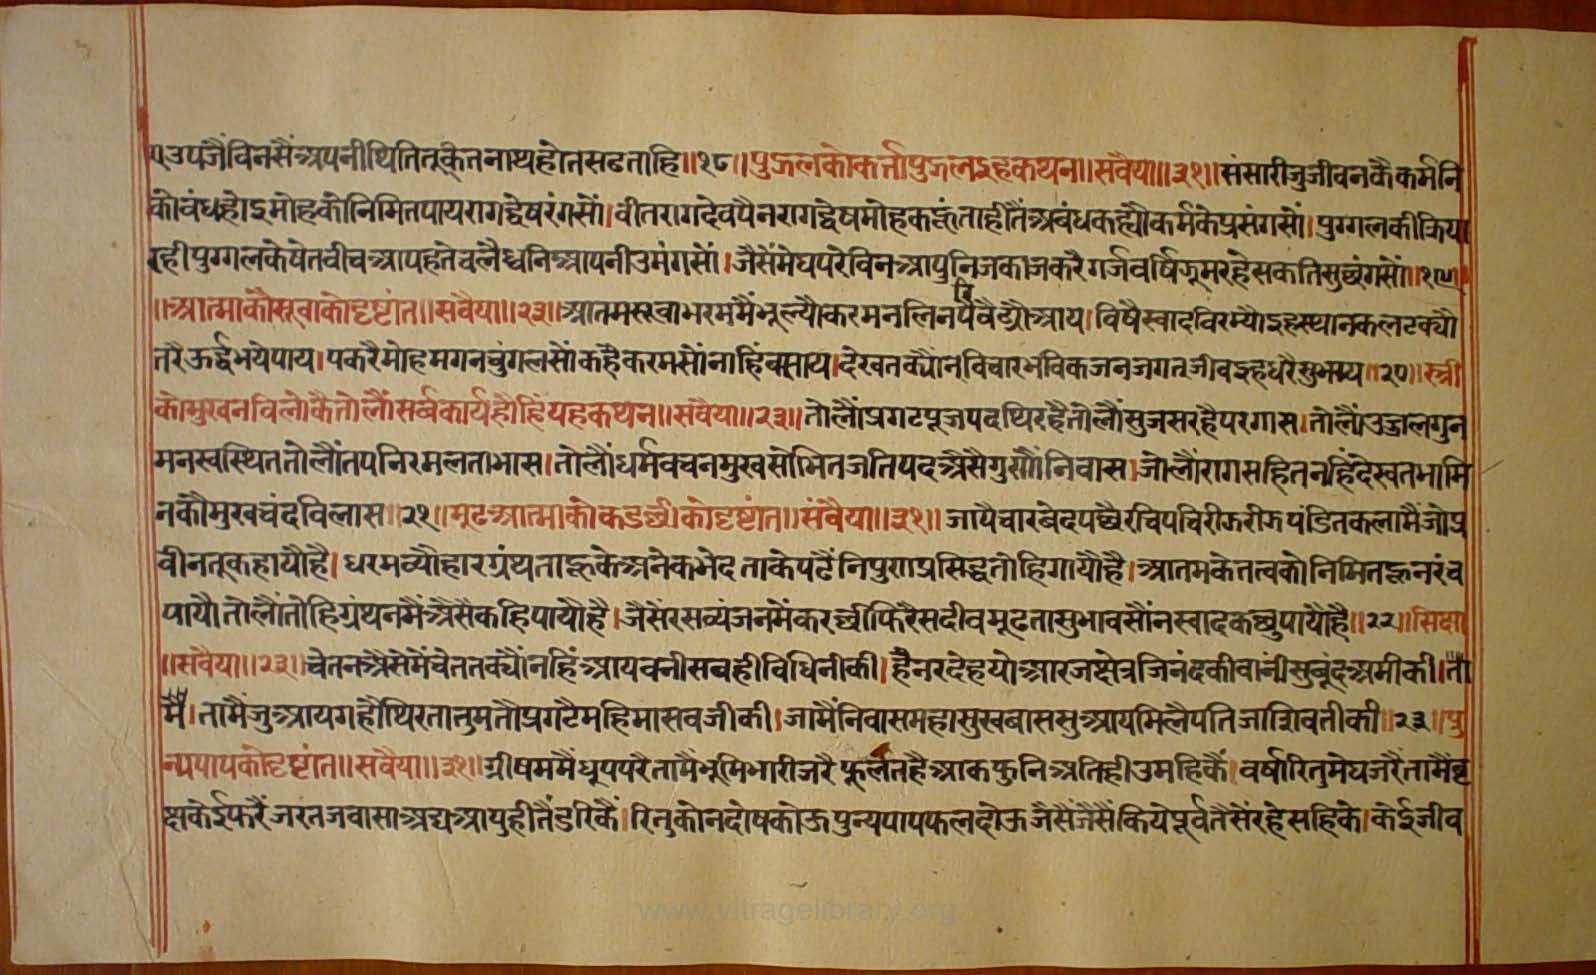 य उपजैंविनसैंअपनीथितितूकेतनाथहोतसठताहि॥१८॥पुद्गलकोकर्त्तापुद्गलइहकथन॥सवैया॥३१॥संसारीजुजीवनकैकर्मनि
कोवंधहोइमोहकोनिमितपायरागद्वेषरंगसों।वीतरागदेवपैनरागद्वेषमोहकछूंताहीतैंअवंधकह्यौकर्मकेप्रसंगसों।पुग्गलकीक्रिया
रहीपुग्गलकेषेतवीचआपहतेचलैध्वनिआपनीउमंगसों।जैसेंमेघपरेविनआपुनिजकाजकरैगर्जवर्षिझूमरहेसकतिसुछंगसों॥१९॥
॥आत्माकौसूवाकोदृष्टांत॥सवैया॥२३॥आतमसूवाभरममैंभूल्यौकरमनलिनपैवैठ्यौआय।विषैस्वादविरम्यौइहस्थानकलटक्यौ
तरैऊर्द्धभयेपाय।पकरैमोहमगनचुंगलसोंकहैकरमसोंनाहिंवसाय।देखतक्यौंनविचारभविकजनजगतजीवइहधरैसुभाय॥२०॥स्त्री
कोमुखनविलोकैतोलौंसर्वकार्यहौहिंयहकथन॥सवैया॥२३॥तोलौंप्रगटपूजपदथिरहैतोलौंसुजसरहैपरगास।तोलौंउज्जलगुन
मनस्वस्थिततोलौंतपनिरमलताभास।तोलौंधर्मवचनमुखसोभितजतिपदअैसैगुणौंनिवास।जोलौंरागसहितनहिंदेखतभामि
नकौमुखचंदविलास॥२१॥मूढआत्माकोकडछीकोदृष्टांत॥सवैया॥३१॥जापैचारबेदपछैरचिपचिरीझरीझपंडितकलामैंजोप्र
वीनतूकहायौहै।धरमव्यौहारग्रंथताहूकेअनेकभेदताकेपढैंनिपुणप्रसिद्धतोहिगायौहै।आतमकेतत्वकोनिमितहूनरंच
पायौतोलौंतोहिग्रंथनमैंअैसैकहिपायौहै।जैसेंरसव्यंजनमैंकरछीफिरैसदीवमूढतासुभावसौंनस्वादकछुपायौहै॥२२॥सिक्षा
॥सवैया॥२३॥चेतनअैसेमेंचेततक्यौंनहिंआयवनीसबहीविधिनीकी।हैनरदेहयोआरजक्षेत्रजिनंदकीवानीसुबूंदअमीकी।ता
मैं।तामैंजुआयगहौथिरतातुमतौप्रगटैमहिमासवजीकी।जामैंनिवासमहासुखबाससुआयमिलैपतिजाशिवतीकी॥२३॥पु
न्यपापकोदृष्टांत॥सवैया॥३१॥ग्रीषममैंधूपपरैतामैंभूमिभारीजरैफूलतहैआकफुनिअतिहीउमहिकैं।वर्षारितुमेघजरैंतामैंवृ
क्षकेईफरैंजरतजवासाअघआपुहीतैंडरिकैं।रितुकोनदोषकोऊपुन्यपापफलदोऊजैसैंजैसैंकियेपूर्वतैसेंरहेसहिके।केईजीव
www.vitragelibrary.org